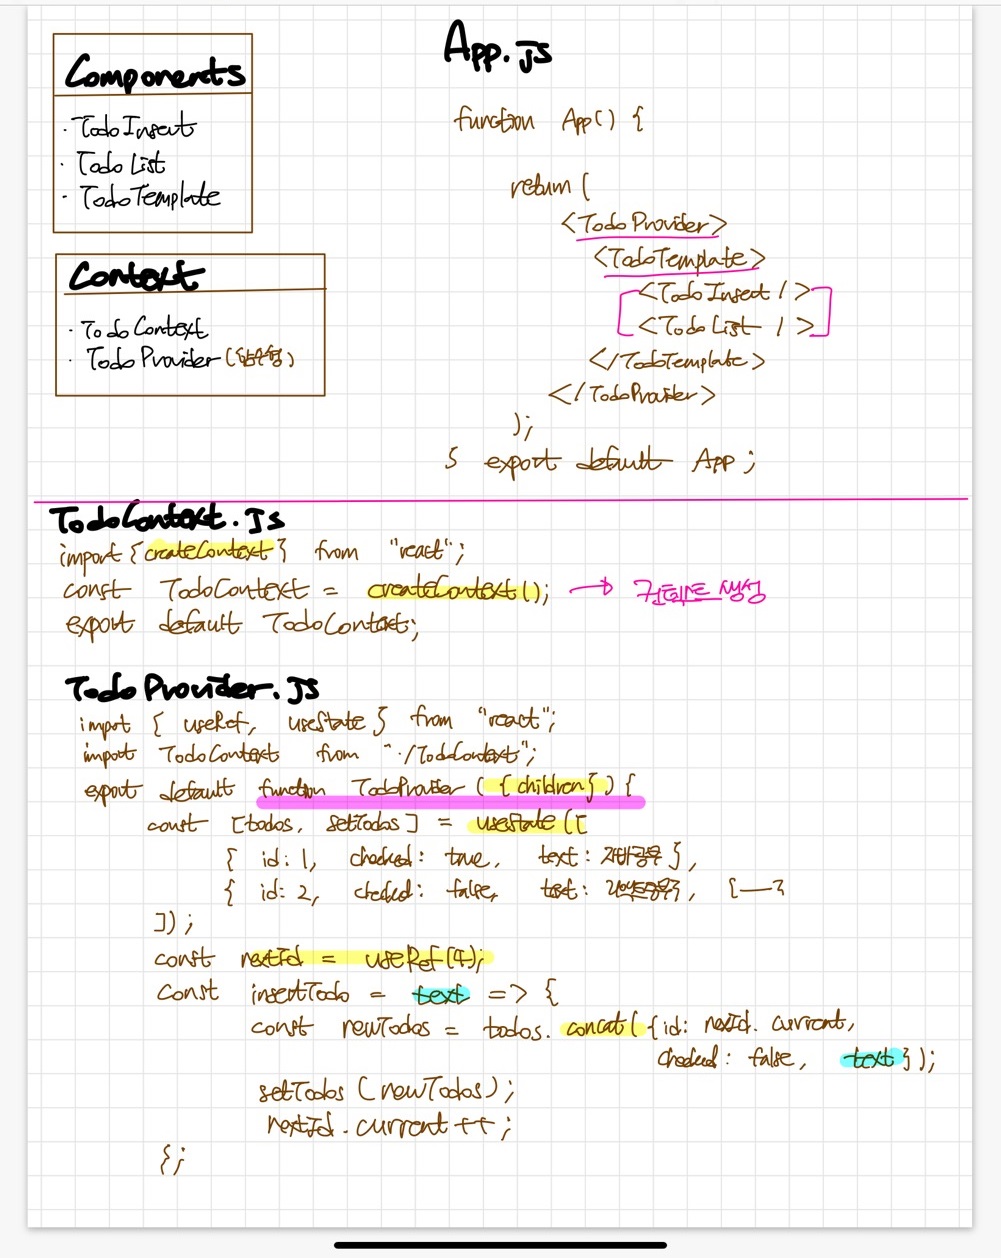 Components
· TodoInsert
· Todo List
· TodoTemplate
Context
· TodoContext
· TodoProvider (함수형)
App.js
function App() {
return (
<TodoProvider>
<TodoTemplate>
<TodoInsert />
<TodoList />
</TodoTemplate>
</TodoProvider>
);
} export default App;
TodoContext.js
import { createContext } from "react";
const TodoContext = createContext(); → 컨텍스트 생성
export default TodoContext;
TodoProvider.js
import { useRef, useState } from "react";
import TodoContext from "./TodoContext";
export default function TodoProvider ( { children } ) {
const [todos, setTodos] = useState ([
{ id: 1, checked: true, text: 자바공부 },
{ id: 2, checked: false, text: },  {—}
]);
const nextId = useRef(4);
const insertTodo = text => {
const newTodos = todos.concat( {id: nextId.current,
checked: false, text});
setTodos (newTodos);
nextId.current++;
};